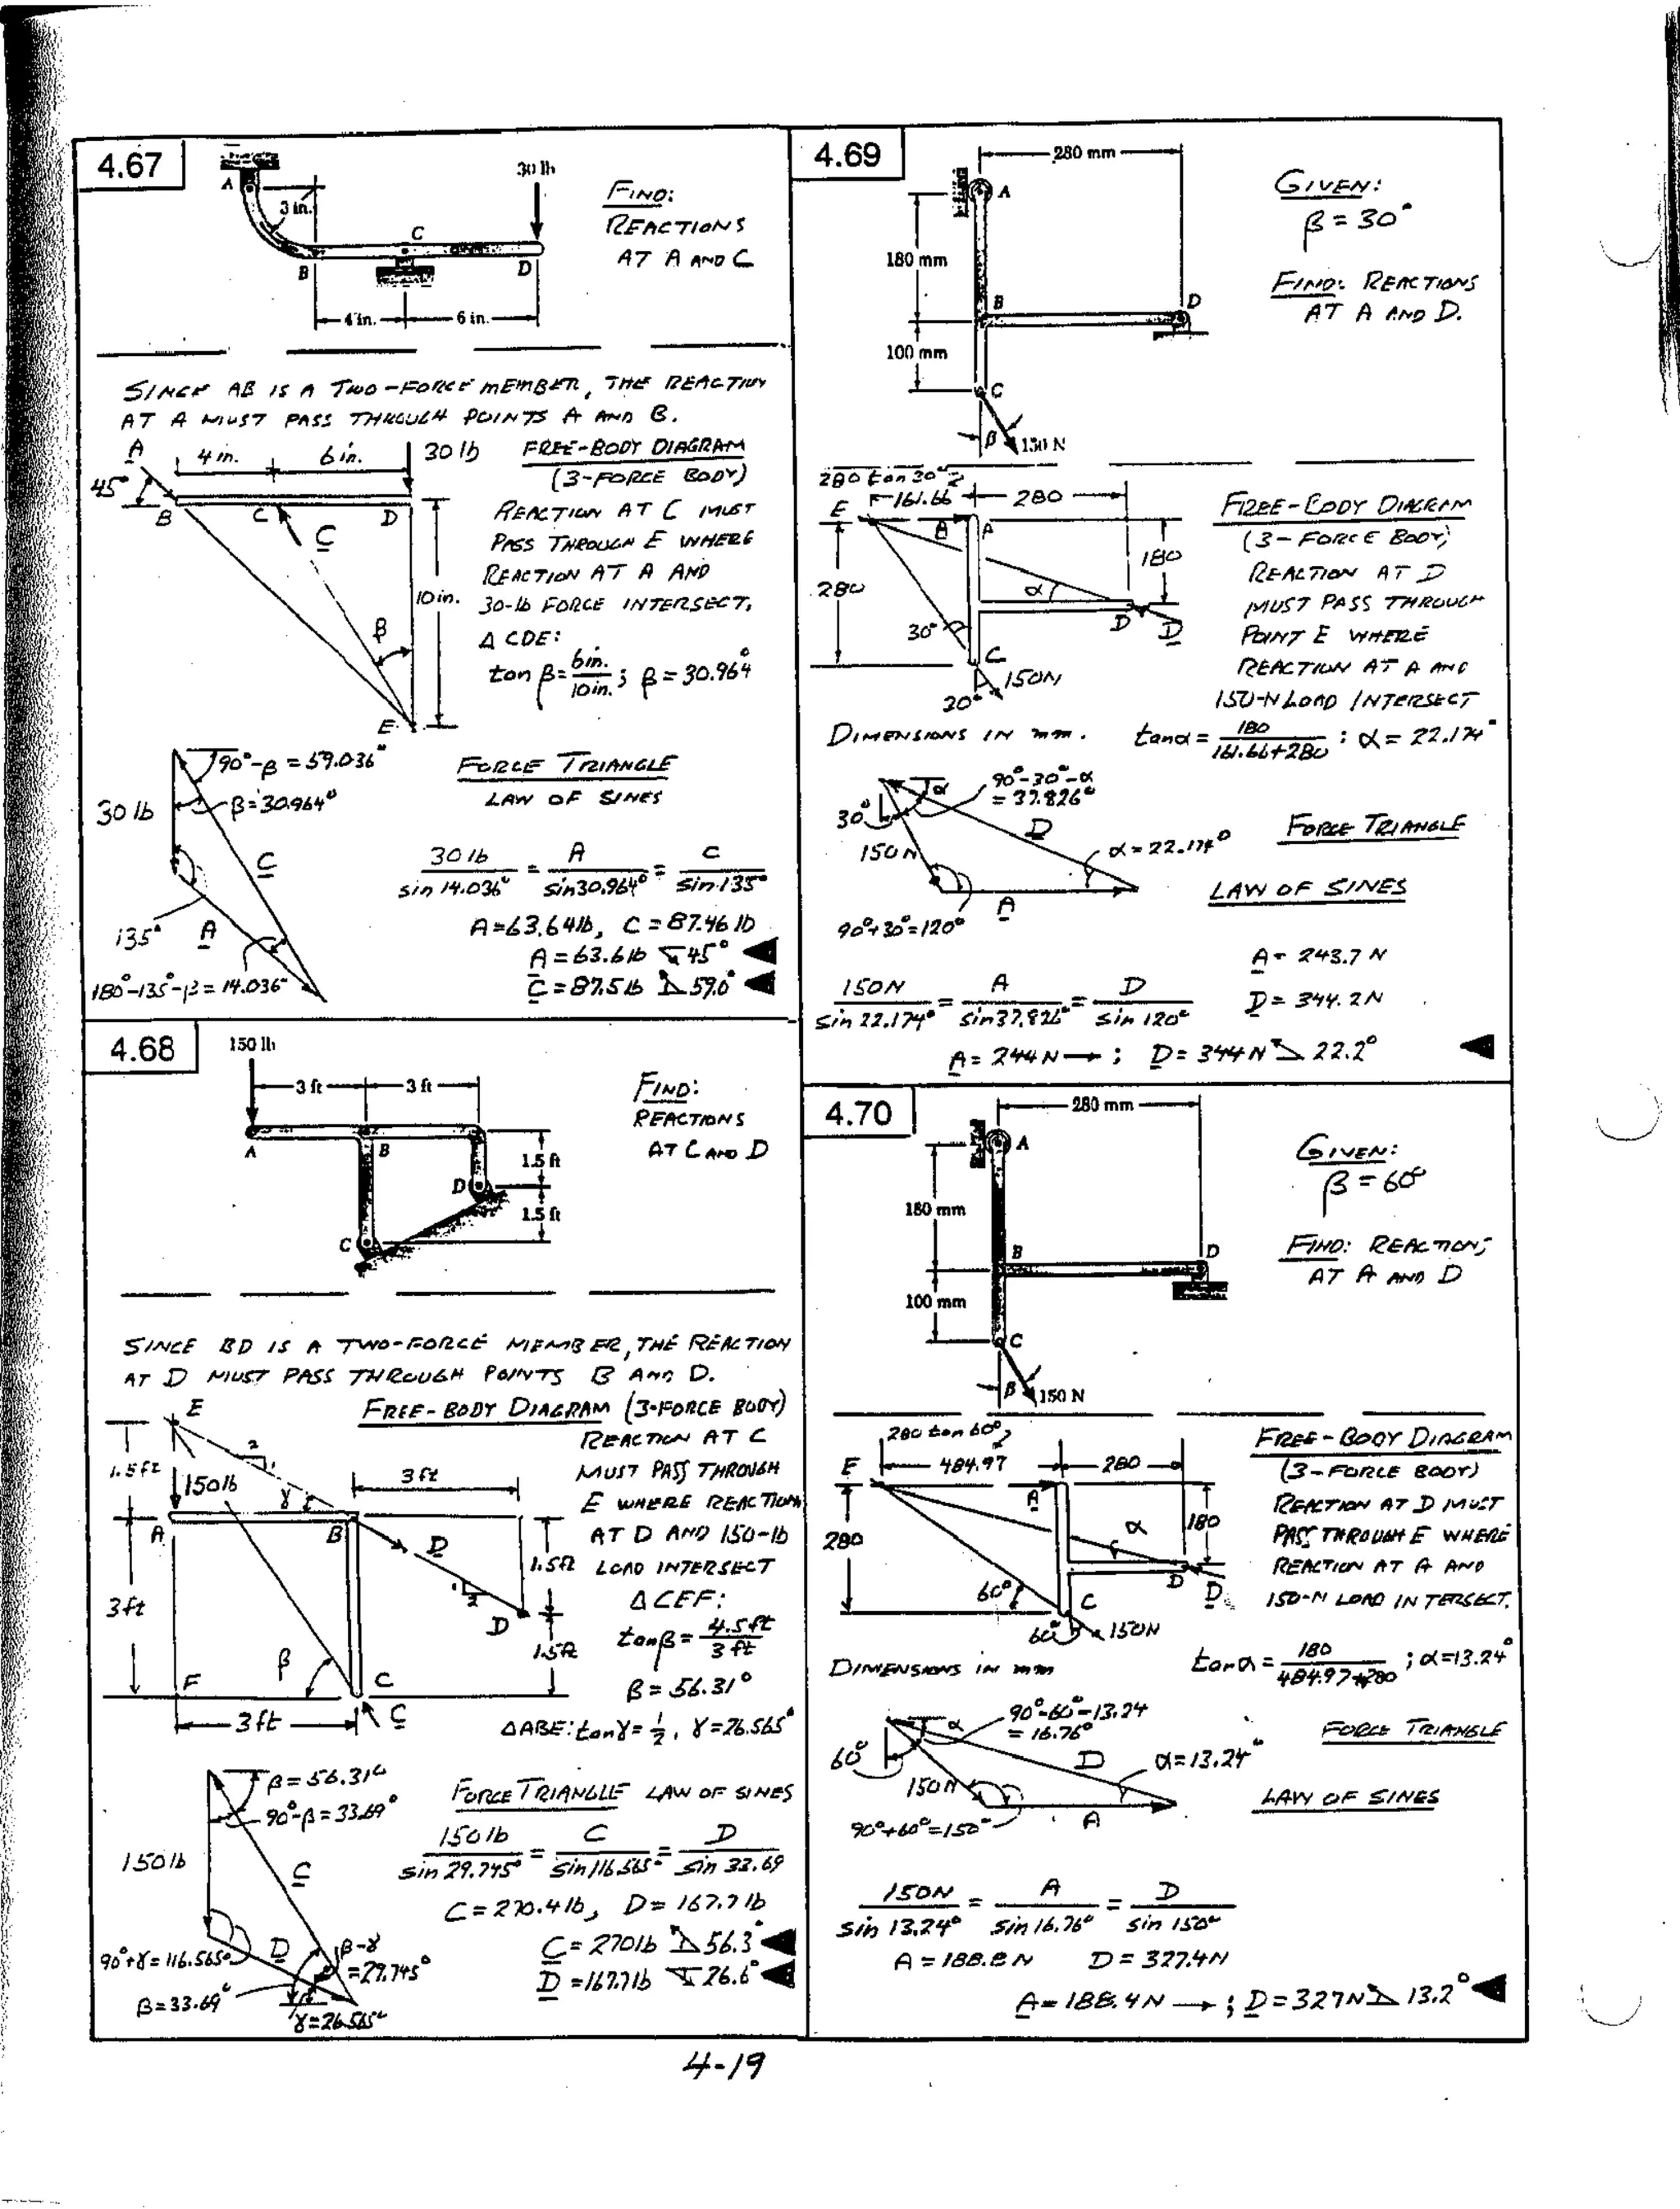 4.67
30 lb
A
3 in.
C
B
D
4 in.
6 in.
FIND:
REACTIONS
AT A AND C
SINCE AB IS A TWO-FORCE MEMBER, THE REACTION
AT A MUST PASS THROUGH POINTS A AND B.
A
4 in.
6 in.
30 lb
45°
B
C
D
C
10 in.
β
E
FREE-BODY DIAGRAM
(3-FORCE BODY)
REACTION AT C MUST
PASS THROUGH E WHERE
REACTION AT A AND
30-lb FORCE INTERSECT.
Δ CDE:
tan β = 6in./10in. ; β = 30.964°
90°-β = 59.036°
β = 30.964°
30 lb
C
135°
A
180°-135°-β = 14.036°
FORCE TRIANGLE
LAW OF SINES
30 lb/sin 14.036° = A/sin 30.964° = C/sin 135°
A = 63.64 lb, C = 87.46 lb
A = 63.6 lb 45°
C = 87.5 lb 59.0°
4.68
150 lb
3 ft
3 ft
A
B
1.5 ft
D
1.5 ft
C
FIND:
REACTIONS
AT C AND D
SINCE BD IS A TWO-FORCE MEMBER, THE REACTION
AT D MUST PASS THROUGH POINTS B AND D.
FREE-BODY DIAGRAM (3-FORCE BODY)
REACTION AT C
MUST PASS THROUGH
E WHERE REACTION
AT D AND 150-lb
LOAD INTERSECT
Δ CEF:
tan β = 4.5 ft/3 ft
β = 56.31°
Δ ABE: tan γ = 1/2, γ = 26.565°
E
2
1
1.5 ft
150 lb
γ
3 ft
A
B
D
1.5 ft
1
2
3 ft
D
1.5 ft
β
F
C
3 ft
C
β = 56.31°
90°-β = 33.69°
150 lb
C
90°+γ = 116.565°
D
β-γ
= 29.745°
β = 33.69°
γ = 26.565°
FORCE TRIANGLE LAW OF SINES
150 lb/sin 29.745° = C/sin 116.565° = D/sin 33.69
C = 270.4 lb, D = 167.7 lb
C = 270 lb 56.3°
D = 167.7 lb 26.6°
4.69
280 mm
A
180 mm
B
D
100 mm
C
β
150 N
GIVEN:
β = 30°
FIND: REACTIONS
AT A AND D.
280 tan 30°
161.66
280
E
A
A
180
280
α
30°
D
D
C
150N
30°
FREE-BODY DIAGRAM
(3-FORCE BODY)
REACTION AT D
MUST PASS THROUGH
POINT E WHERE
REACTION AT A AND
150-N LOAD INTERSECT
DIMENSIONS IN mm.
tan α = 180/161.66+280 ; α = 22.174°
α
90°-30°-α
= 37.826°
30°
D
150 N
α = 22.174°
A
90°+30° = 120°
FORCE TRIANGLE
LAW OF SINES
150N/sin 22.174° = A/sin 37.826° = D/sin 120°
A = 243.7 N
D = 344.2 N
A = 244 N → ; D = 344 N 22.2°
4.70
280 mm
A
180 mm
B
D
100 mm
C
β
150 N
GIVEN:
β = 60°
FIND: REACTIONS
AT A AND D
280 tan 60°
484.97
280
E
A
180
280
α
60°
D
D
C
60°
150N
FREE-BODY DIAGRAM
(3-FORCE BODY)
REACTION AT D MUST
PASS THROUGH E WHERE
REACTION AT A AND
150-N LOAD INTERSECT.
DIMENSIONS IN mm
tan α = 180/484.97+280 ; α = 13.24°
α
90°-60°-13.24
= 16.76°
60°
D
α = 13.24°
150N
A
90°+60° = 150°
FORCE TRIANGLE
LAW OF SINES
150N/sin 13.24° = A/sin 16.76° = D/sin 150°
A = 188.8 N D = 327.4 N
A = 188.4 N → ; D = 327 N 13.2°
4-19